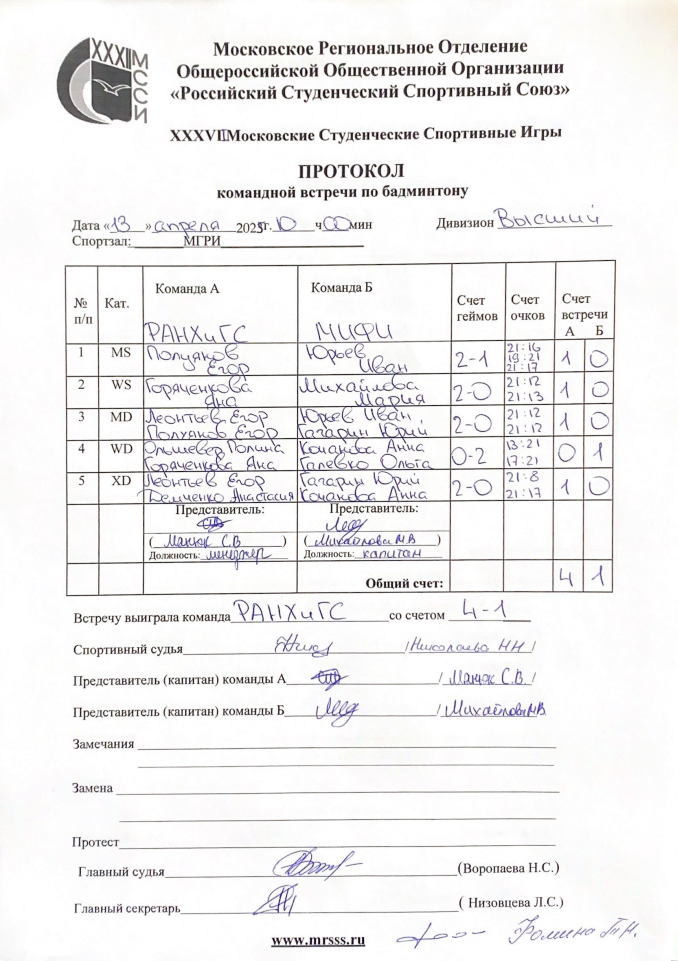 XXXII МССИ
Московское Региональное Отделение
Общероссийской Общественной Организации
«Российский Студенческий Спортивный Союз»
XXXVII Московские Студенческие Спортивные Игры
ПРОТОКОЛ
командной встречи по бадминтону
Дата «13» апреля 2025г. 10 ч 00 мин Дивизион Высший
Спортзал: МГРИ
№ п/п Кат. Команда А Команда Б Счет геймов Счет очков Счет встречи А Б
РАНХиГС МИФИ
1 MS Полуяков Егор Юрьев Иван 2-1 21:16 19:21 21:17 1 0
2 WS Горяченкова Яна Михайлова Мария 2-0 21:12 21:13 1 0
3 MD Леонтьев Егор Полуяков Егор Юрьев Иван Гагарин Юрий 2-0 21:12 21:12 1 0
4 WD Ольшевер Полина Горяченкова Яна Кочанова Анна Галевко Ольга 0-2 13:21 17:21 0 1
5 XD Леонтьев Егор Демченко Анастасия Гагарин Юрий Кочанова Анна 2-0 21:8 21:17 1 0
Представитель: Представитель:
( Манюк С.В ) ( Михайлова М.В )
Должность: менеджер Должность: капитан
Общий счет: 4 1
Встречу выиграла команда РАНХиГС со счетом 4-1
Спортивный судья / Николаева НН /
Представитель (капитан) команды А / Манюк С.В /
Представитель (капитан) команды Б / Михайлова М.В.
Замечания
Замена
Протест
Главный судья (Воропаева Н.С.)
Главный секретарь ( Низовцева Л.С.)
www.mrsss.ru Фомина Т.Н.